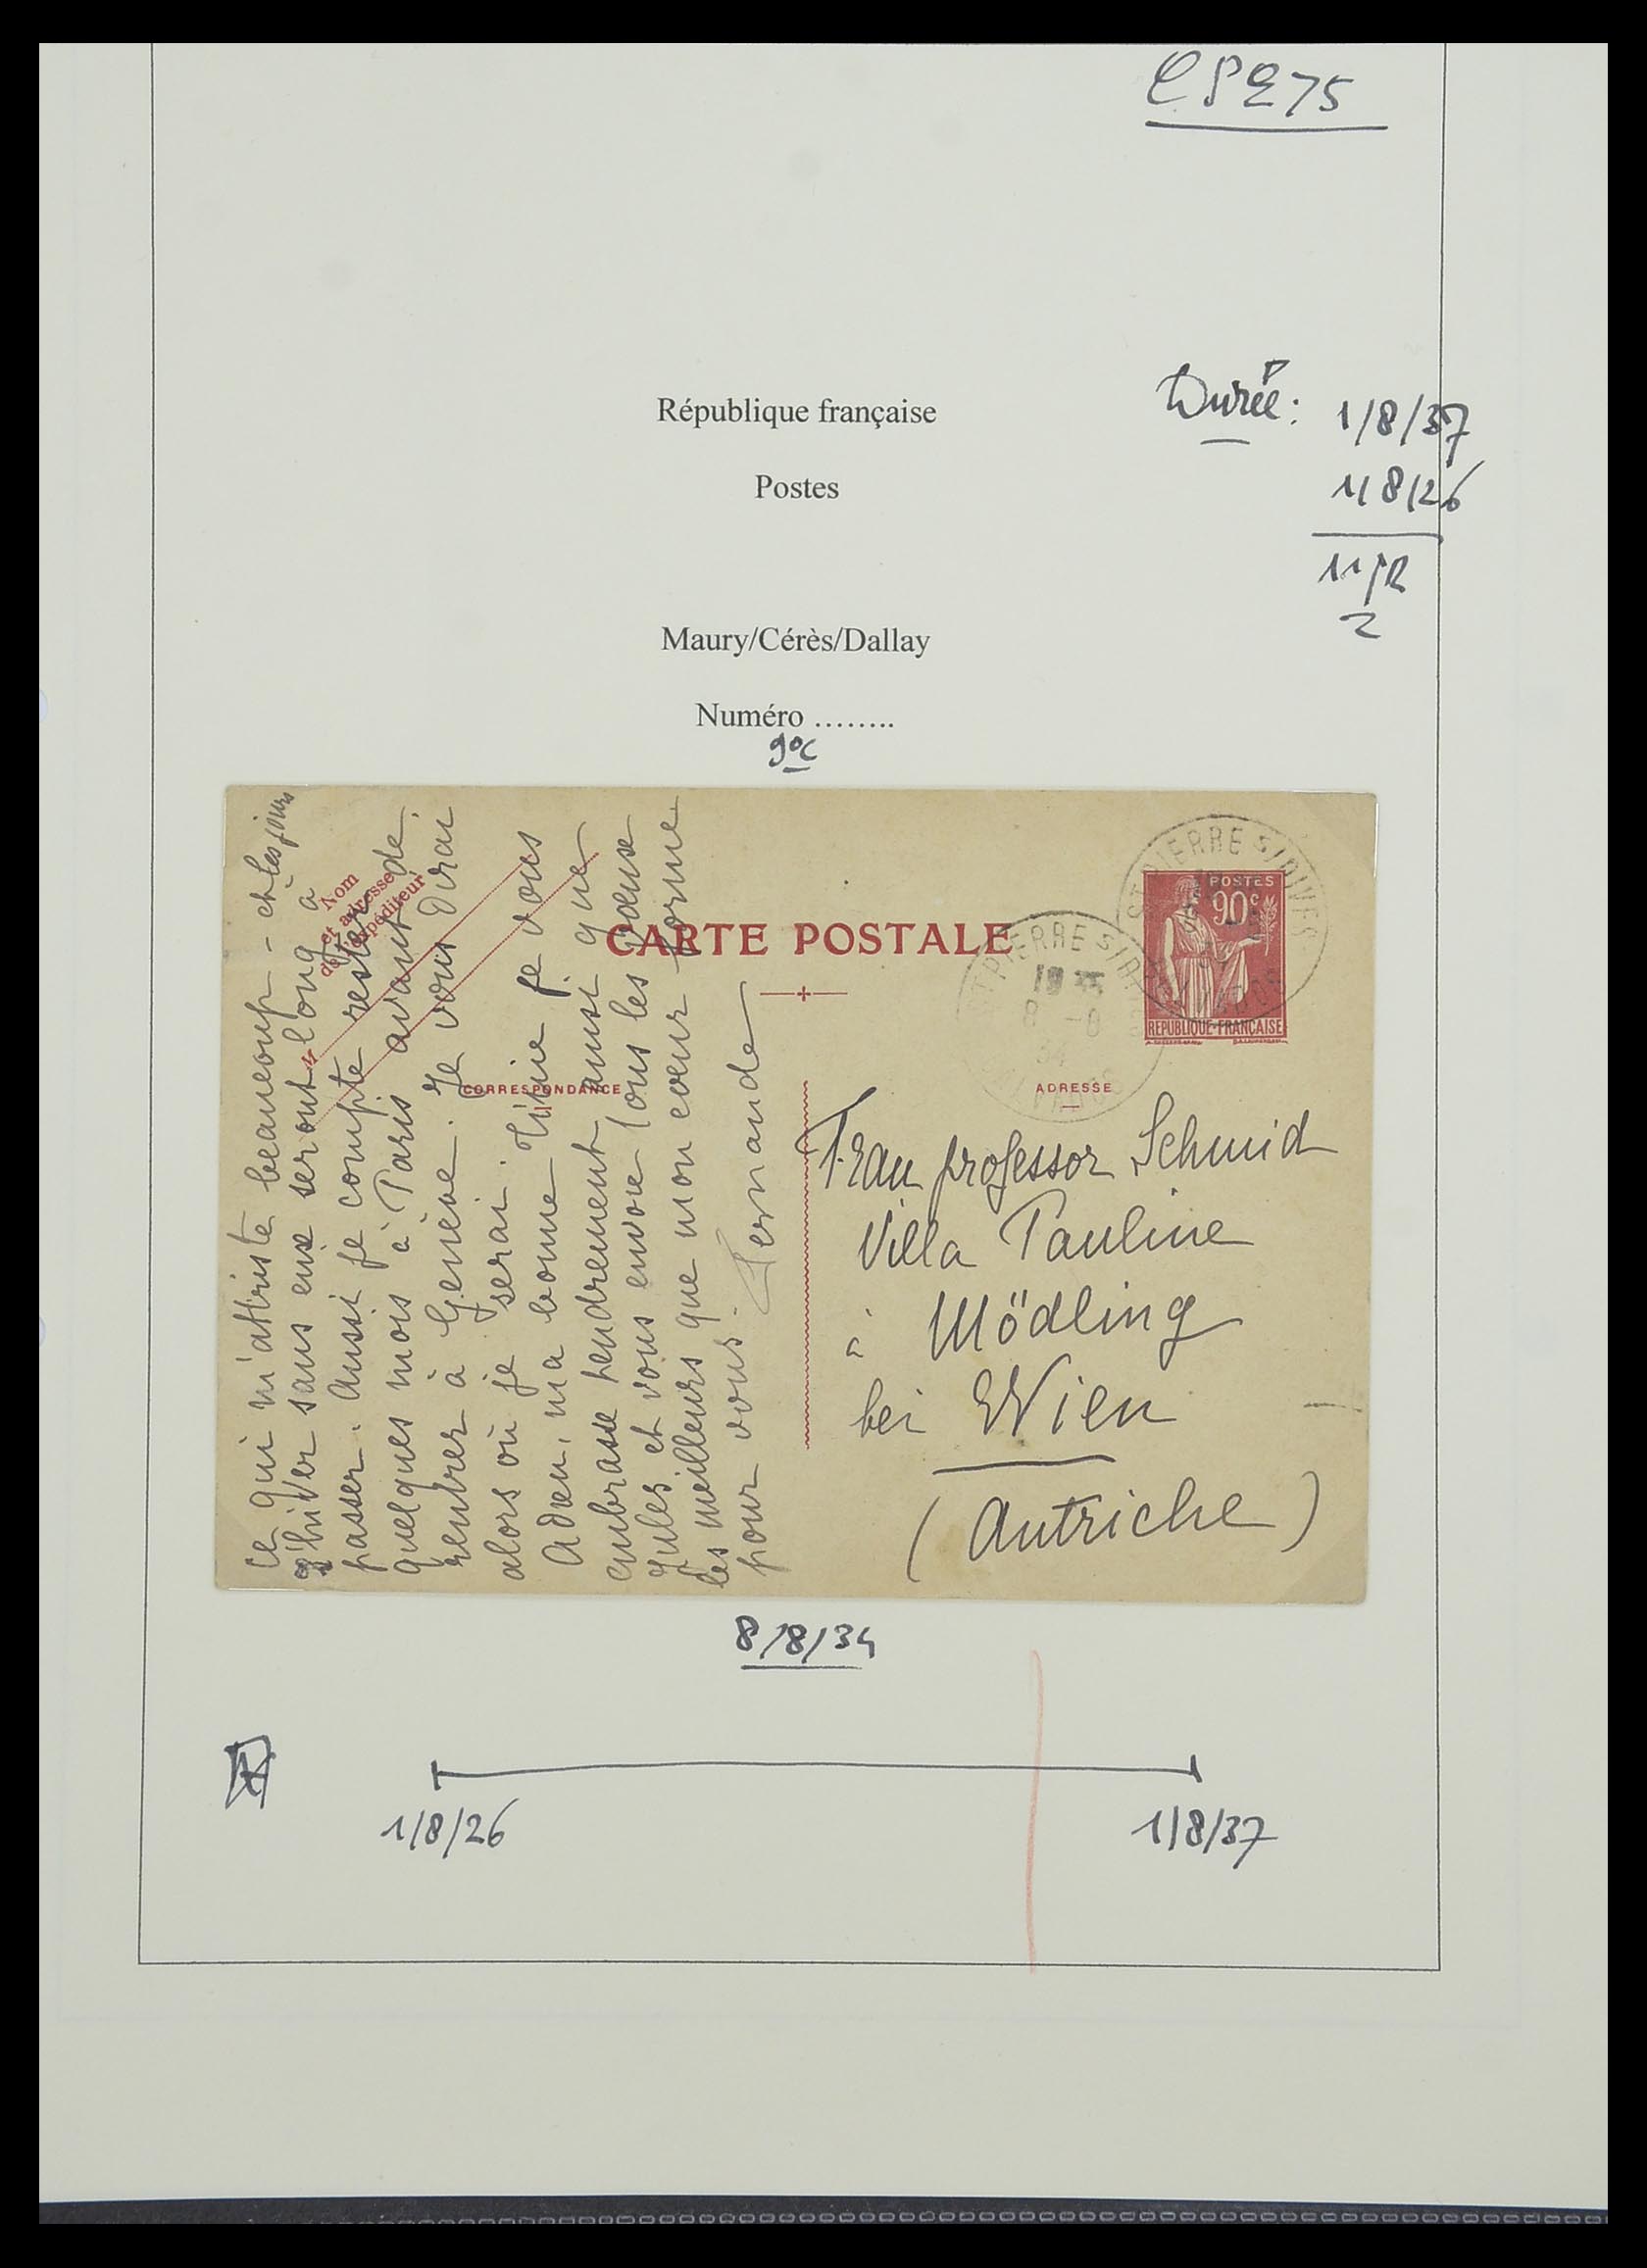 CP275
République française
Durée: 1/8/37
1/8/26
Postes
Maury/Cérès/Dallay
Numéro ........
90c
ce qui m'attriste beaucoup - et les jours
d'hiver sans eux seront long à
passer. Aussi je compte rester
quelques mois à Paris avant de
rentrer à Genève. Je vous dirai
alors où je serai. je vous
Adieu, ma bonne
embrasse tendrement ainsi que
Jules et vous envoie tous les voeux
les meilleurs que mon coeur forme
pour vous. Fernande
Nom
et adresse
de l'expéditeur
CARTE POSTALE
CORRESPONDANCE
ADRESSE
POSTES
90c
REPUBLIQUE-FRANÇAISE
ST PIERRE S/DIVES
CALVADOS
ST PIERRE S/DIVES
19
8 -8
34
CALVADOS
Frau professor Schmid
Villa Pauline
à Mödling
bei Wien
(Autriche)
8/8/34
1/8/26
1/8/37